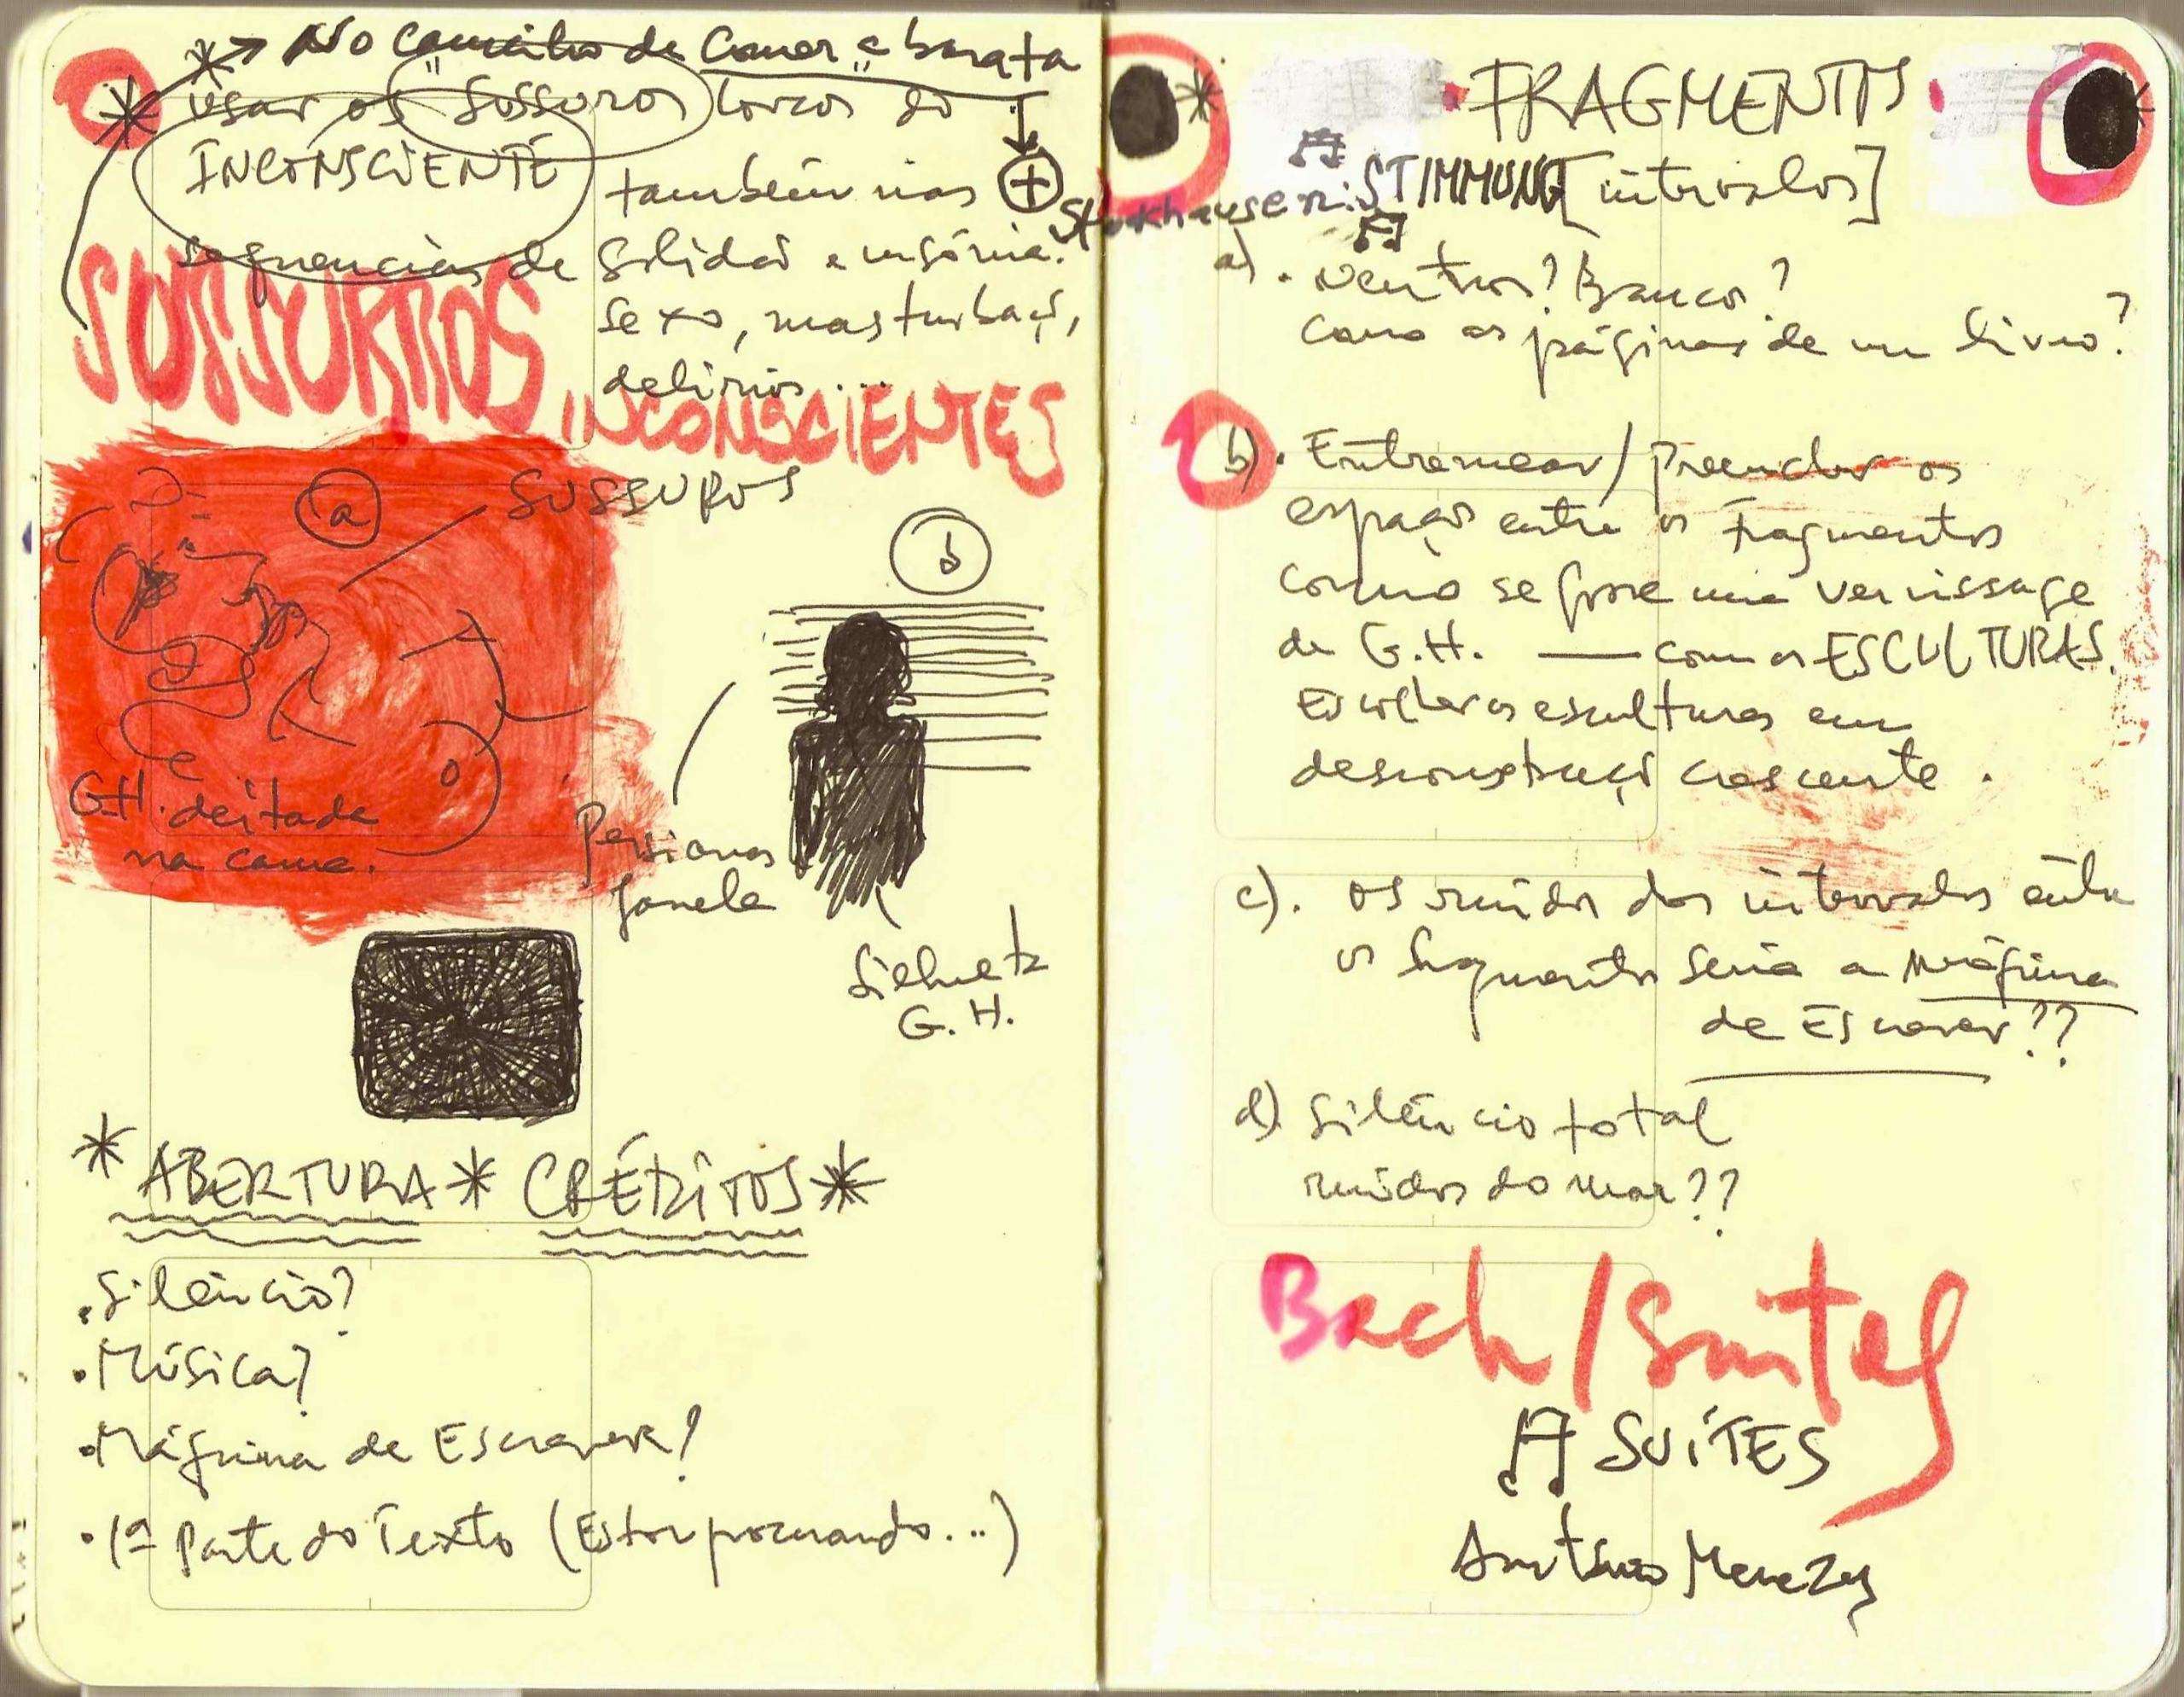 * → No caminho de comer a barata
* usar os "sussuros" loucos do
INCONSCIENTE
também nas +
sequencias de solidão e insônia.
sexo, masturbaçã,
delírios...
SUSSURROS
INCONSCIENTES
a
SUSSUROS
b
G.H. deitada
na cama.
Persianas
Janela
Silhueta
G.H.
* ABERTURA * CRÉDITOS *
. Silêncio?
. Música?
. Máquina de Escrever?
. 1ª Parte do Texto (Estou procurando...)
. FRAGMENTOS .
Stockhausen: STIMMUNG [intervalos]
a) . Neutros? Brancos?
como as páginas de um livro?
b) . Entremear / Preencher os
espaços entre os fragmentos
como se fosse uma vernissage
de G.H. — com as ESCULTURAS.
Escolher as esculturas em
desconstruçã crescente .
c) . os ruídos dos intervalos entre
os fragmentos seria a máquina
de Escrever??
d) Silêncio total
ruídos do mar??
Bach / Suites
SUÍTES
Antônio Menezes